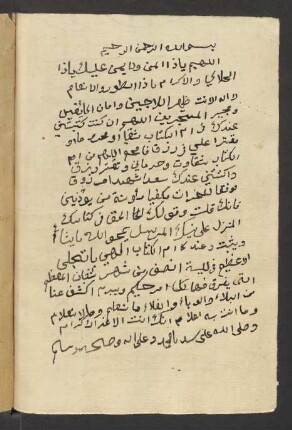 بسم الله الرحمن الرحيم
اللهم يا ذا المن ولا يمن عليك يا ذا
الجلال والاكرام يا ذا الطول والانعام
لا اله الا انت ظهر اللاجين وامان الخايفين
ومجير المستجيرين اللهم ان كنت كتبتني
عندك في ام الكتاب شقيا او محروما او
مقترا علي في رزق فامحو اللهم من ام
الكتاب شقاوت وحرماني وتقتير رزق
واكتبني عندك سعيدا مرزوقا
موفقا للخيرات مكفيا مؤنة من يوذيني
فانك قلت وقولك الحق في كتابك
المنزل على نبيك المرسل يمحو الله ما يشا
ويثبت وعنده ام الكتاب الهي بالتجلي
الاعظم في ليلة النصف من شهر شعبان المعظم
التي يفرق فيها كل امر حكيم ويبرم اكشف عنا
من البلاء والوباء والغلا ما نعلم وما لا نعلم
وما انت به اعلم انك انت الاعز الاكرام
وصلى الله على سيدنا محمد وعلى اله وصحبه وسلم